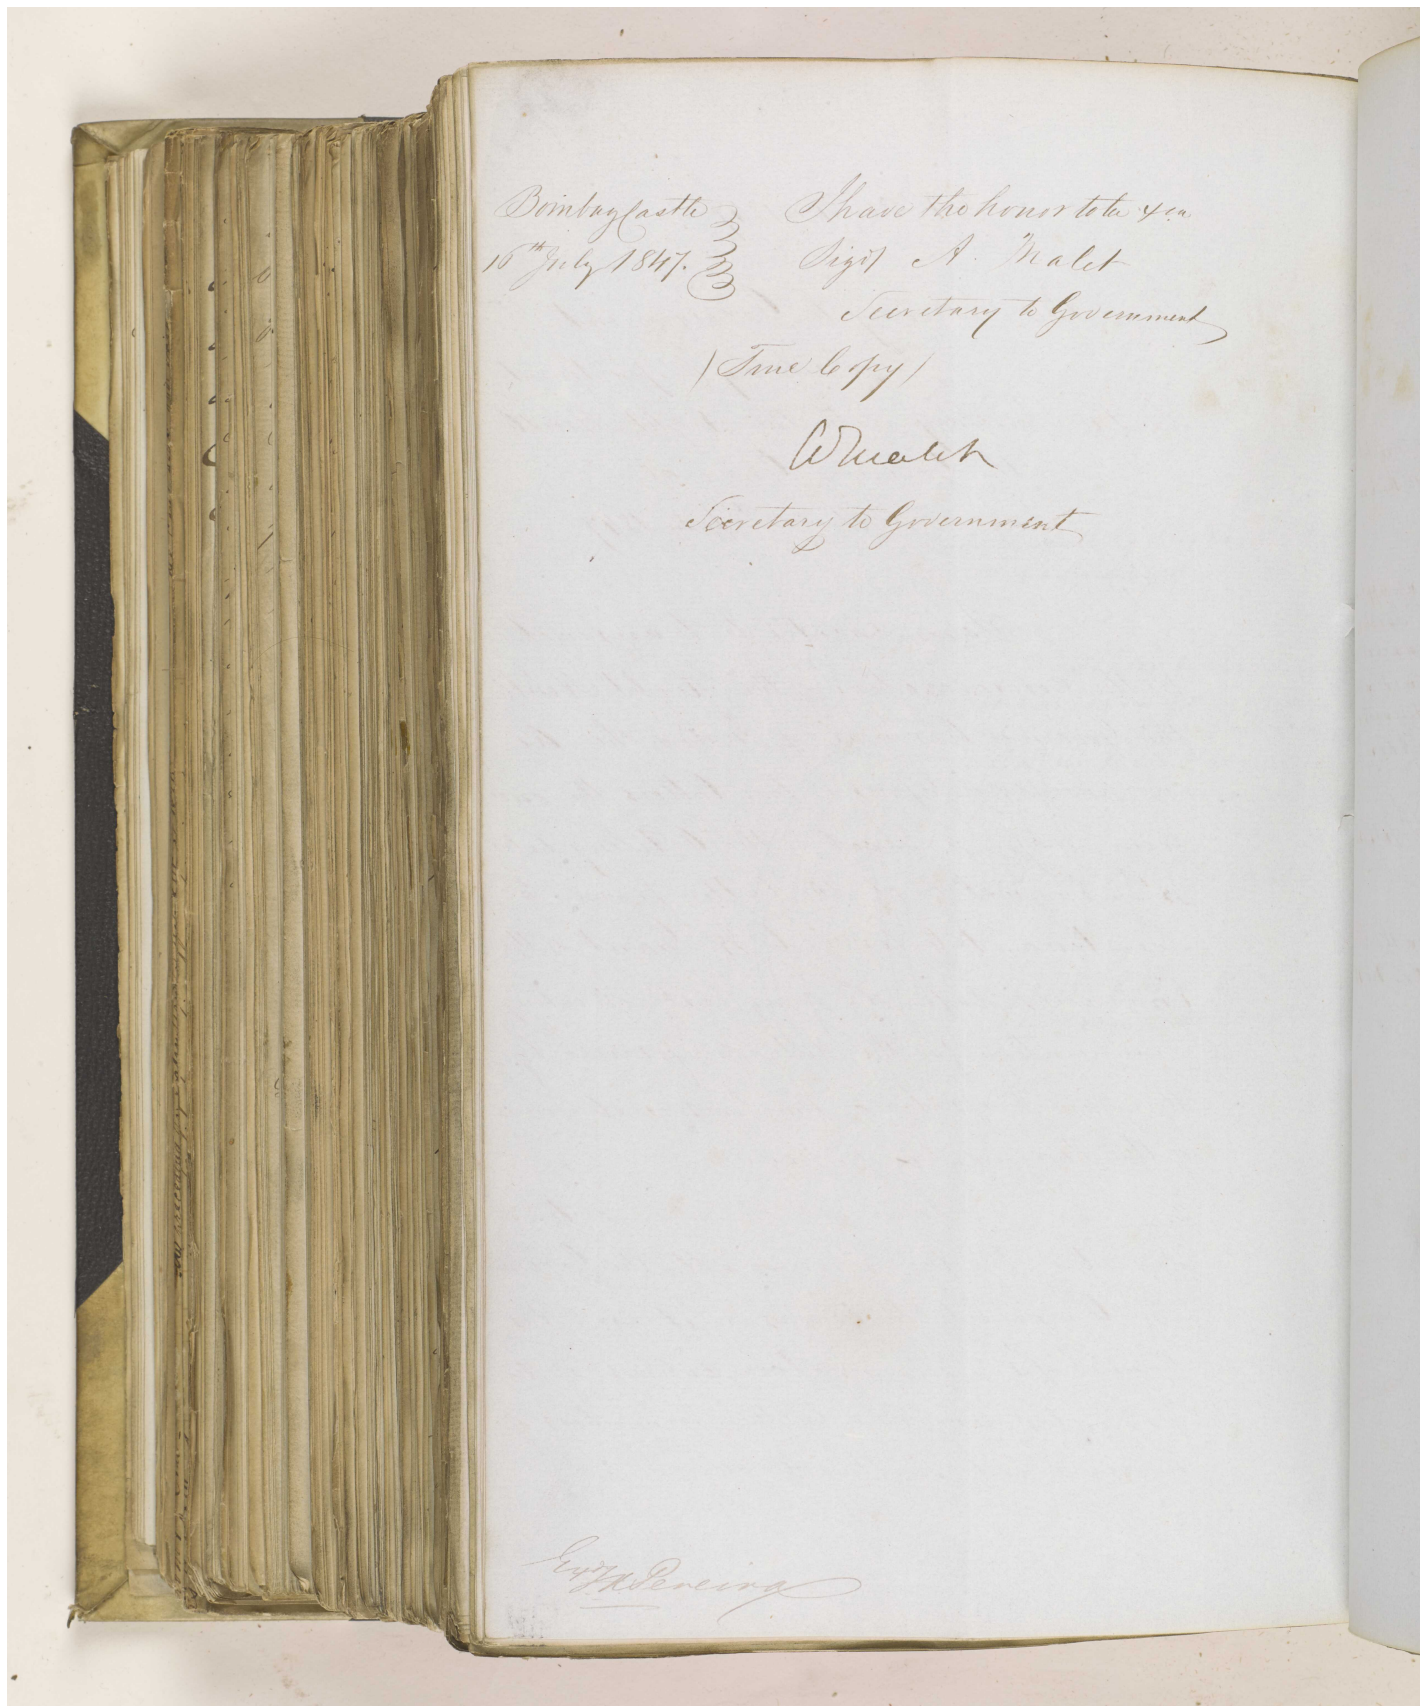 Bombay Castle
16th July 1847.
I have the honor to be &ca
Sigd A. Malet
Secretary to Government
(True Copy)
A Malet
Secretary to Government
Pereira